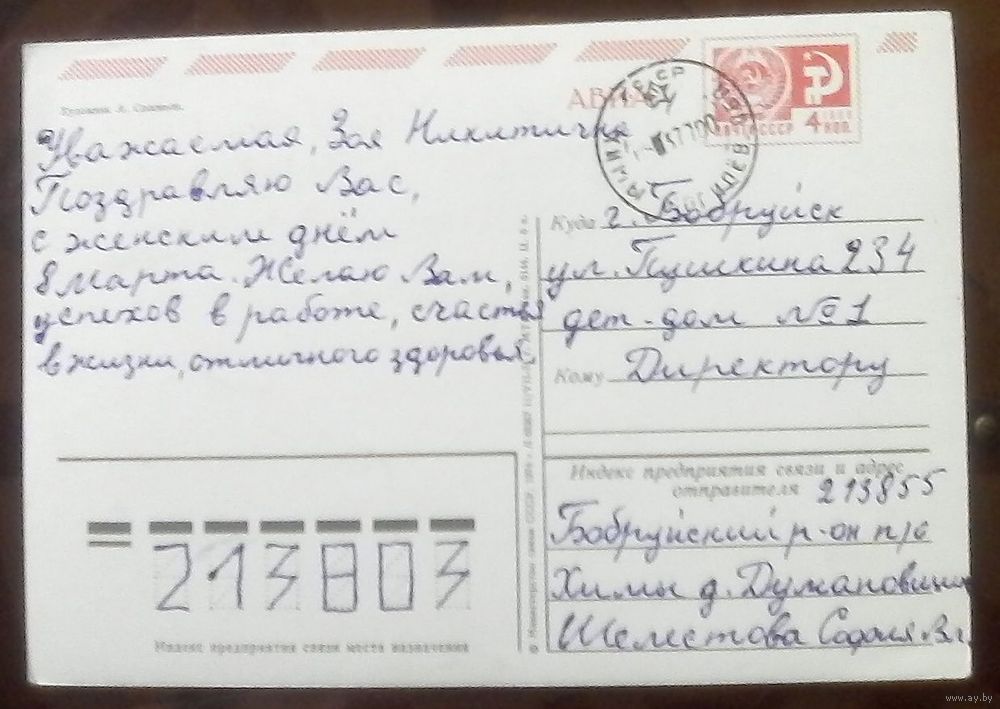 АВИА
ПОЧТА СССР
4 КОП.
Художник А.
Уважаемая, Зоя Никитична
Поздравляю Вас,
с женским днём
8 марта. Желаю Вам,
успехов в работе, счастья
в жизни, отличного здоровья.
Куда г. Бобруйск
ул. Пушкина 234
дет-дом № 1
Кому Директору
Индекс предприятия связи и адрес
отправителя 213855
Бобруйский р-он п/о
Химы д. Думановщина
Шеметова София Вл.
213803
Индекс предприятия связи места назначения
www.ay.by